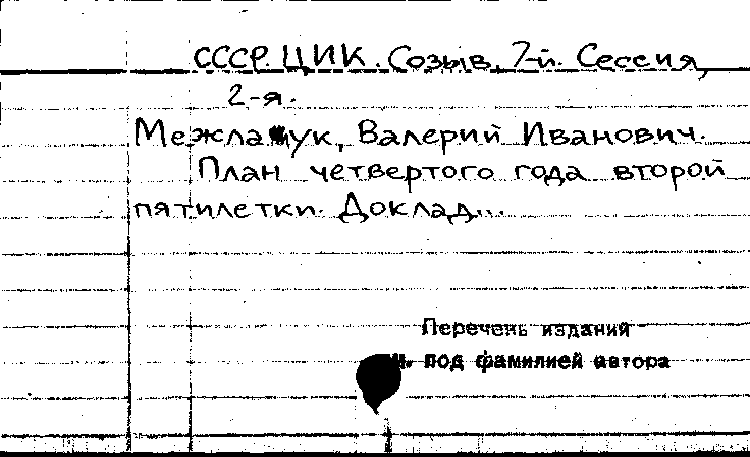 СССР. ЦИК. Созыв, 7-й. Сессия,
2-я.
Межлаук, Валерий Иванович.
План четвертого года второй
пятилетки. Доклад...
Перечень изданий
под фамилией автора